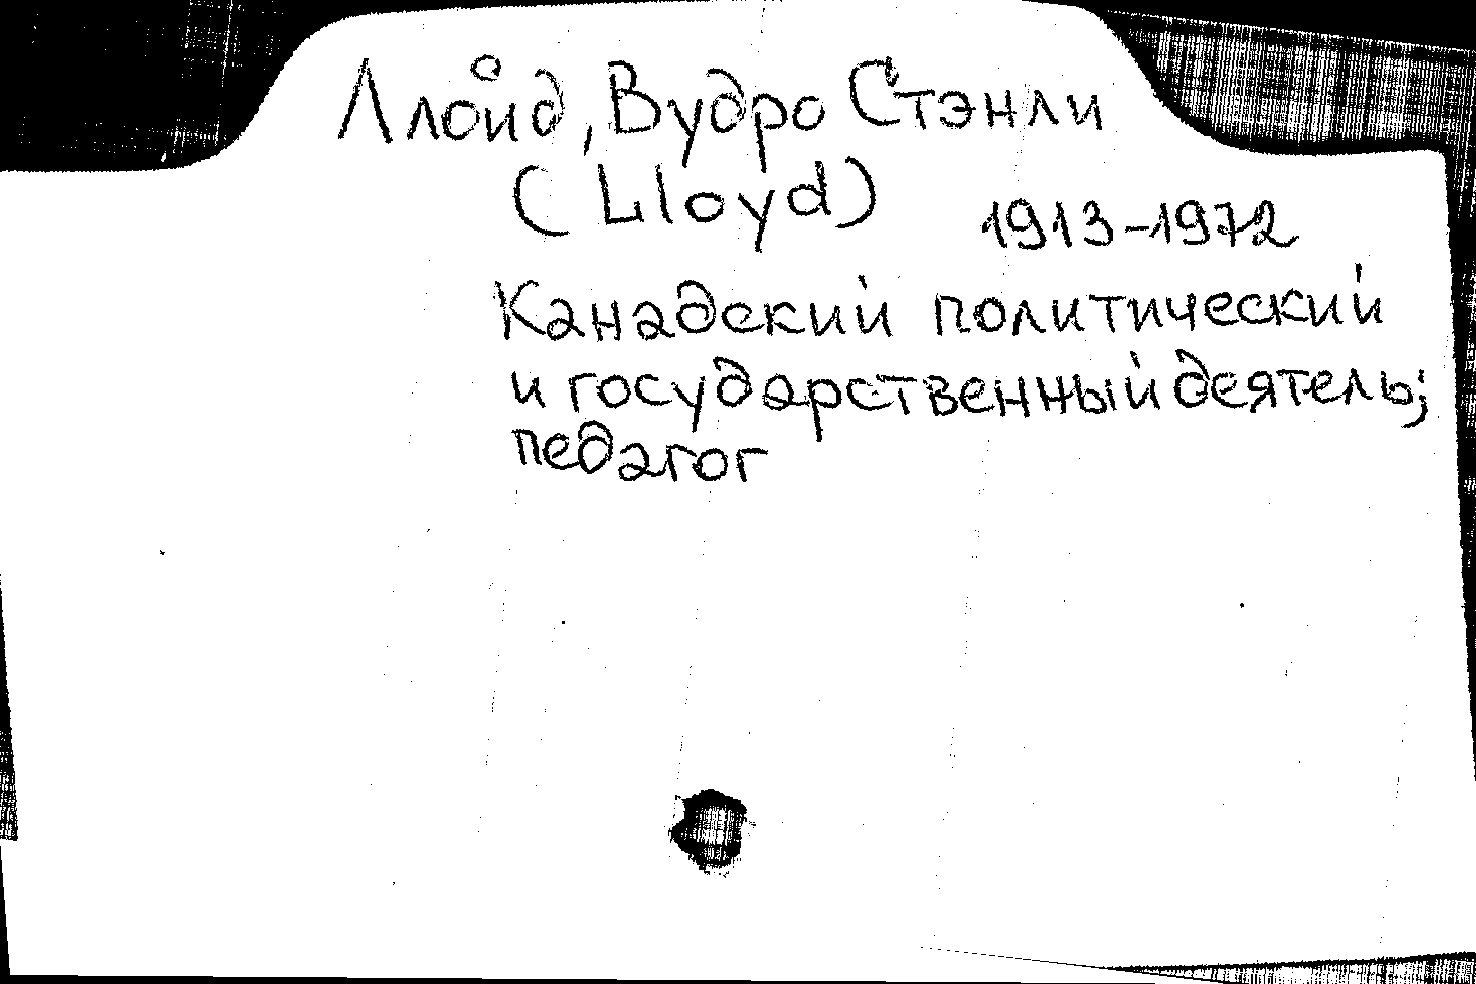 Ллойд, Вудро Стэнли
(Lloyd) 1913-1972
Канадский политический
и государственный деятель;
педагог